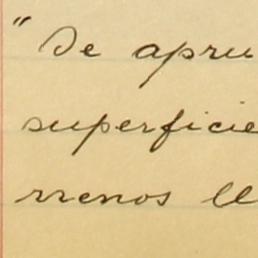 "De apru
superficie
rrenos ll